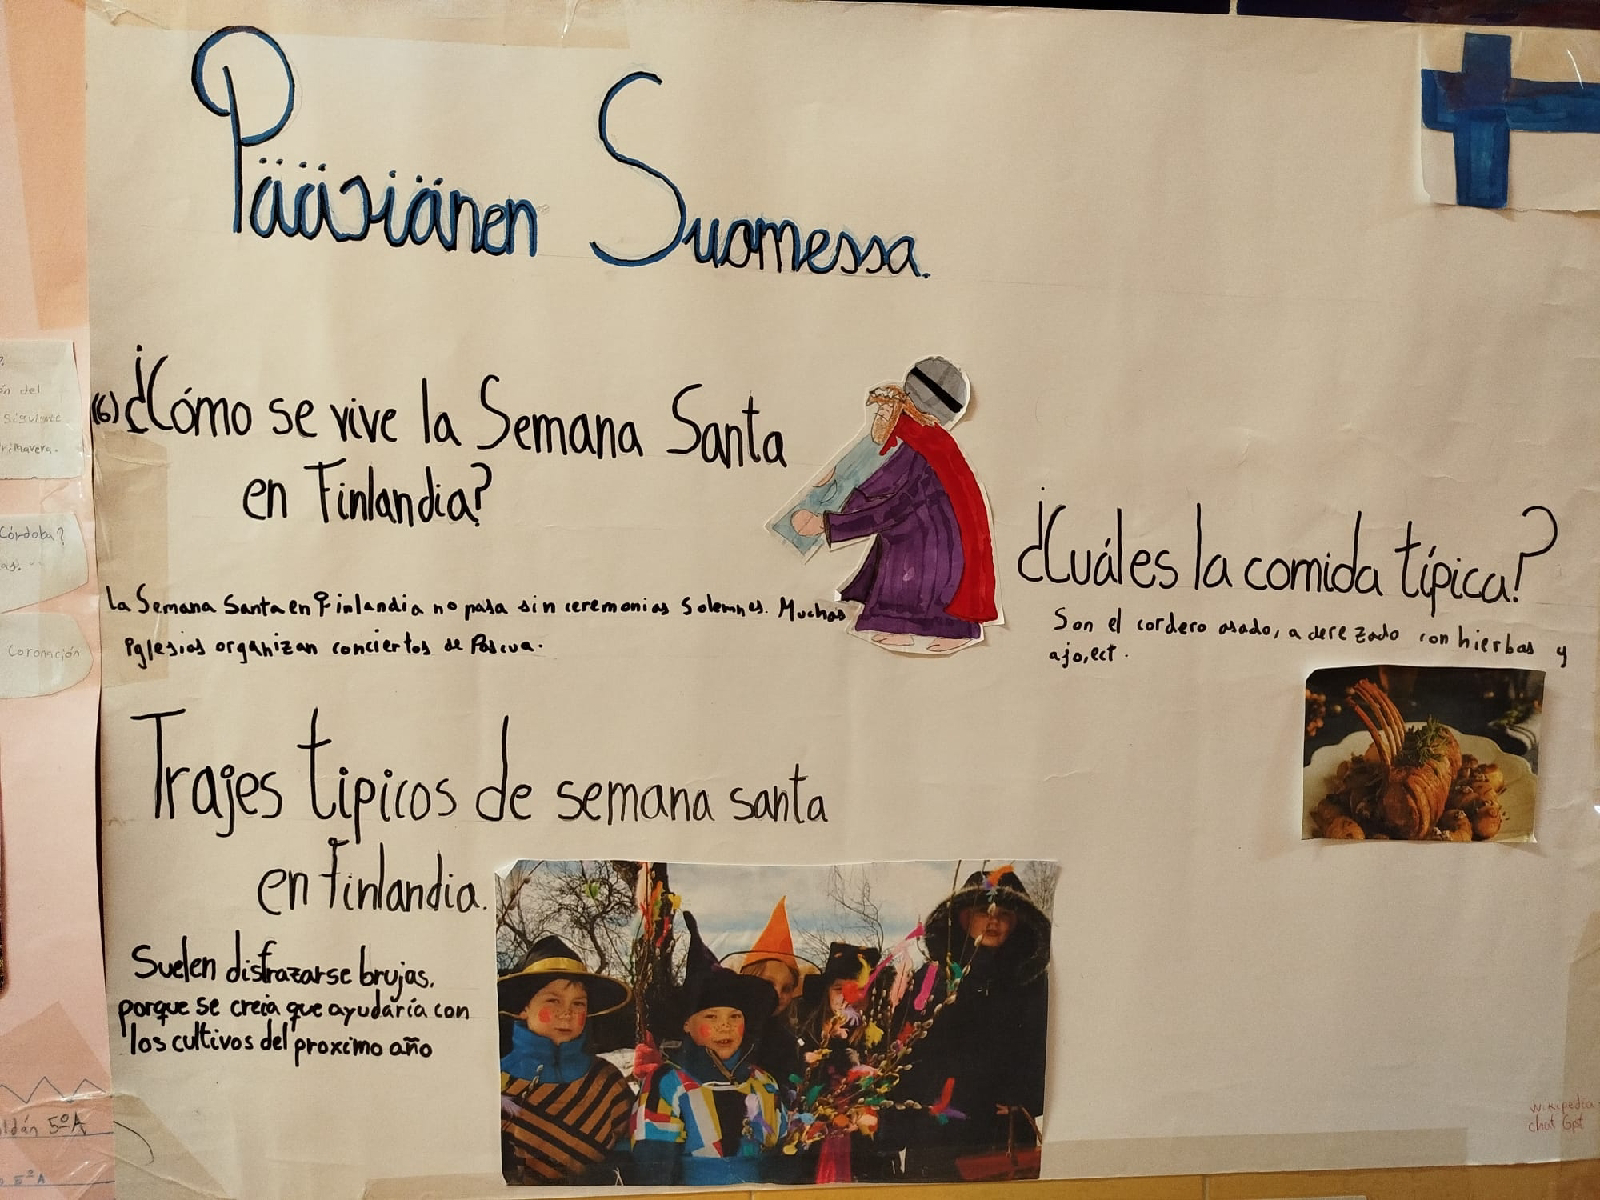 Pääsiänen Suomessa.
(6) ¿Cómo se vive la Semana Santa
en Finlandia?
La Semana Santa en Finlandia no pasa sin ceremonias Solemnes. Muchas
Iglesias organizan conciertos de Pascua.
¿Cuáles la comida típica?
Son el cordero asado, aderezado con hierbas y
ajo, ect.
Trajes tipicos de semana santa
en Finlandia.
Suelen disfrazarse brujas,
porque se creia que ayudaría con
los cultivos del proximo año
wikipedia
chat Gpt
ón del
siguiente
rimavera.
Córdoba?
as.
Coronación
ldán 5ºA
5ºA